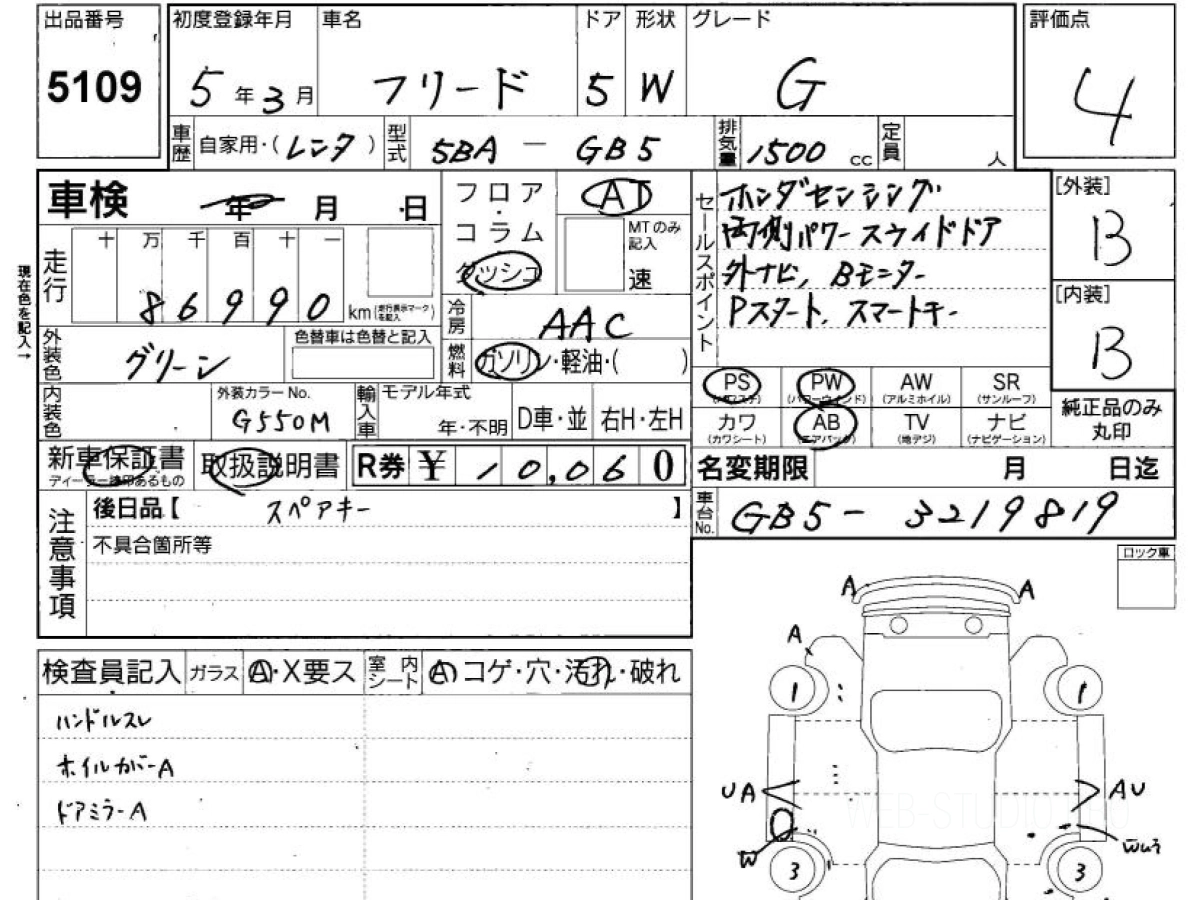 出品番号 初度登録年月 車名 ドア 形状 グレード 評価点
5109 5年3月 フリード 5 W G 4
車歴 自家用・(レンタ) 型式 5BA - GB5 排気量 1500cc 定員 人
車検 年 月 日
フロア・コラム
ダッシュ
AT
MTのみ記入
速
セールスポイント
ホンダセンシング
両側パワースライドドア
外ナビ, Bモニター
Pスタート, スマートキー
[外装]
B
[内装]
B
現在色を記入→
走行 十 万 千 百 十 一
86990 km (走行表示マークを記入)
冷房 AAC
外装色 グリーン 色替車は色替と記入
燃料 ガソリン・軽油・( )
内装色 外装カラーNo. G550M
輸入車 モデル年式 年・不明 D車・並 右H・左H
PS (パワステ) PW (パワーウインド) AW (アルミホイル) SR (サンルーフ)
カワ (カワシート) AB (エアバック) TV (地デジ) ナビ (ナビゲーション)
純正品のみ丸印
新車保証書 取扱説明書 R券 ¥10,060
ディーラー捺印あるもの
名変期限 月 日迄
注意事項
後日品【 スペアキー 】
不具合箇所等
車台No. GB5-3219819
ロック車
検査員記入 ガラス A・X要ス 室内シート A コゲ・穴・汚れ・破れ
ハンドルスレ
ホイルカバーA
ドアミラーA
A A
A
1 1
UA AU
W
3 3
WEB-STUDIO.PRO